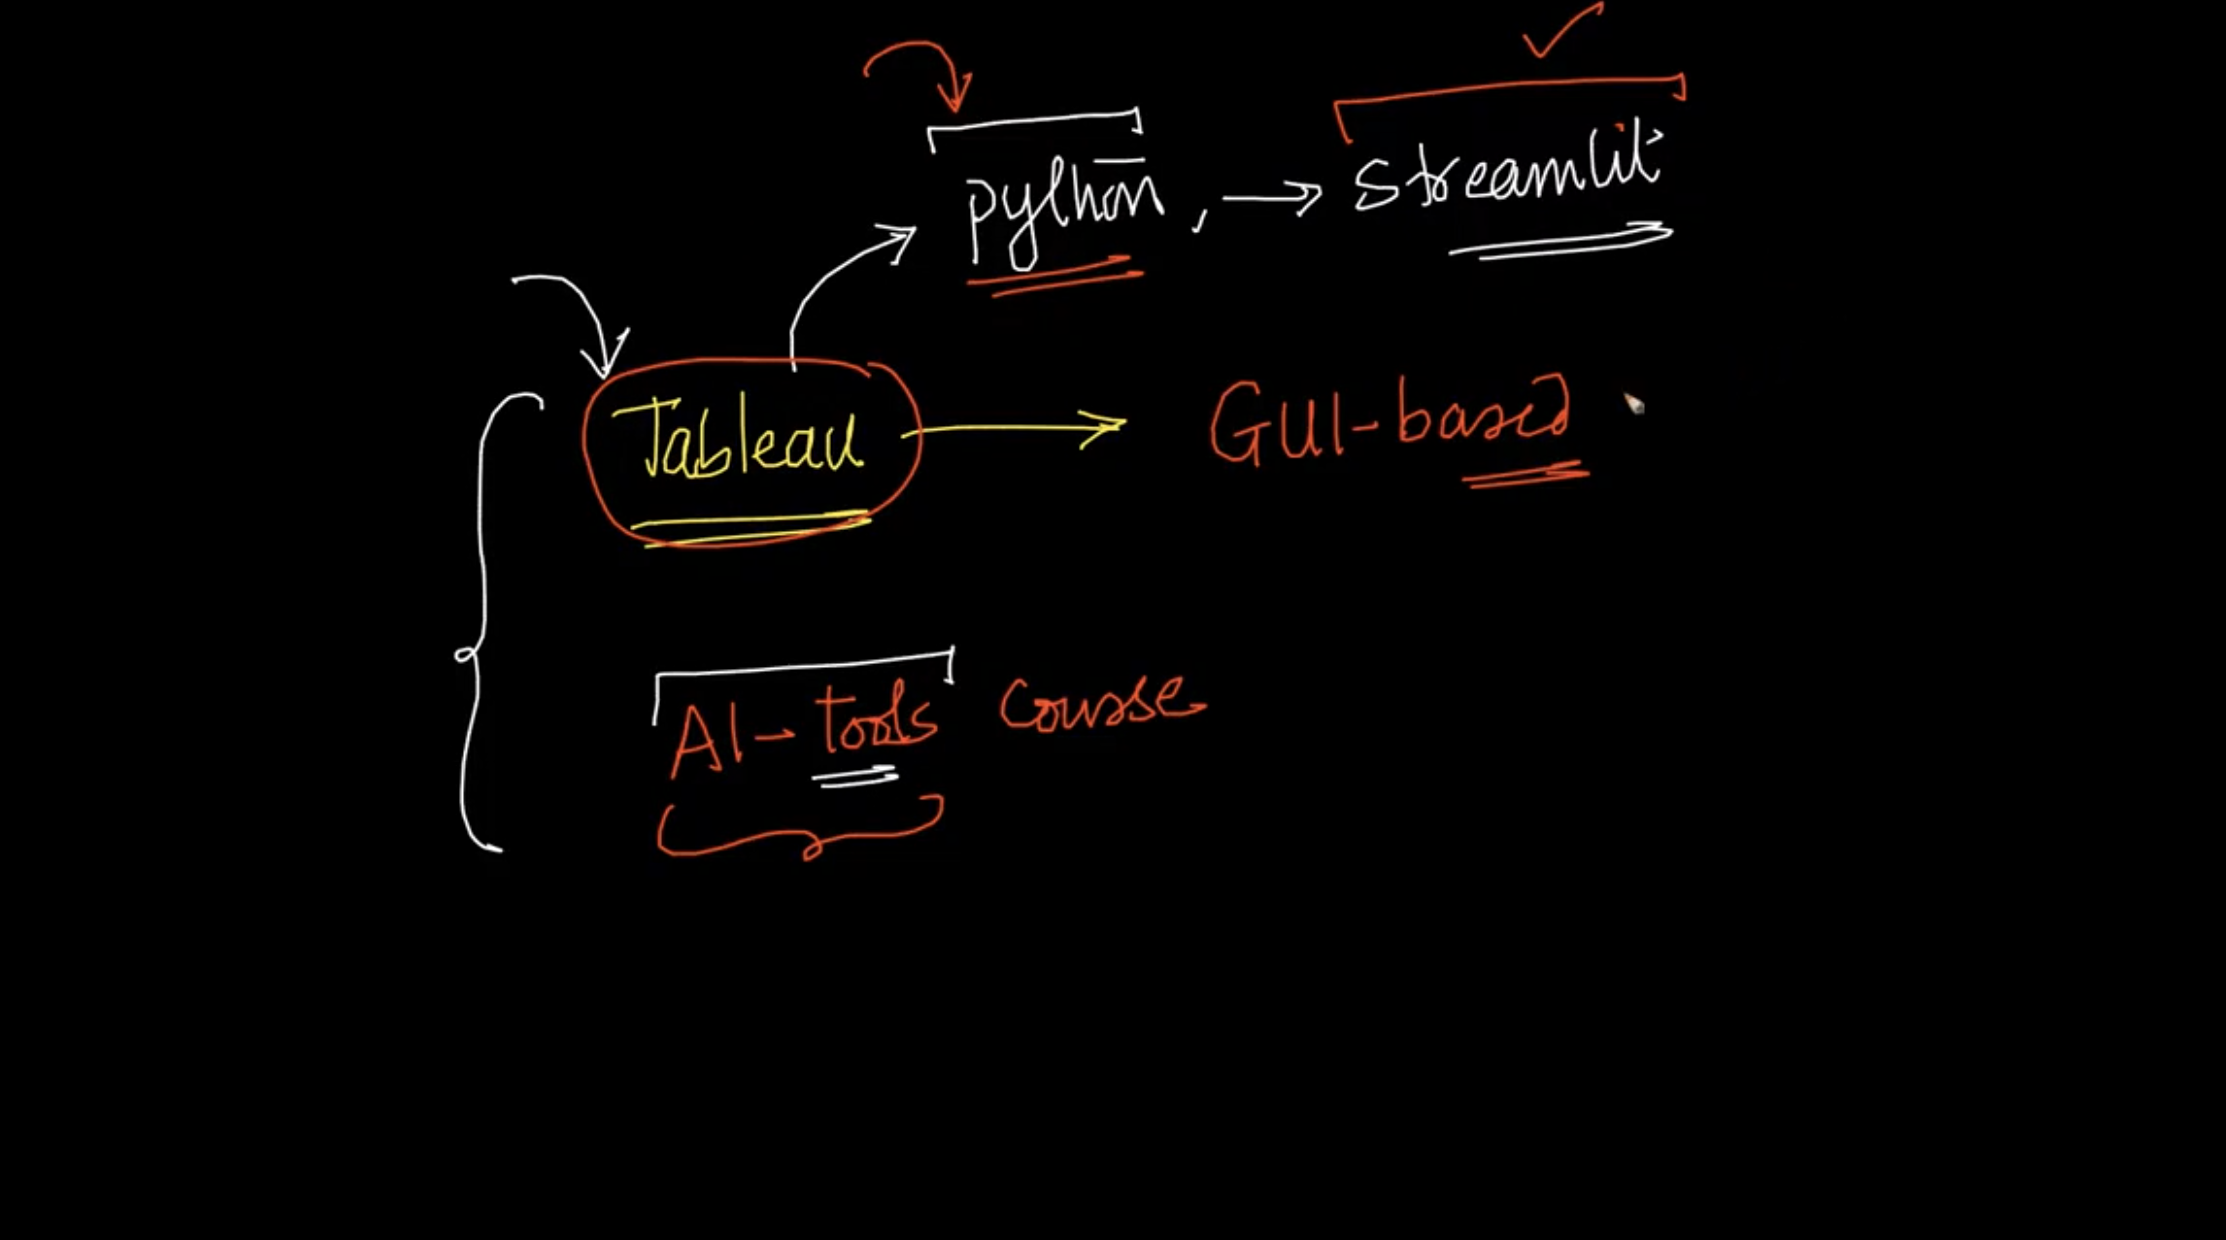 python, → streamlit
Tableau → GUI-based
AI-tools course